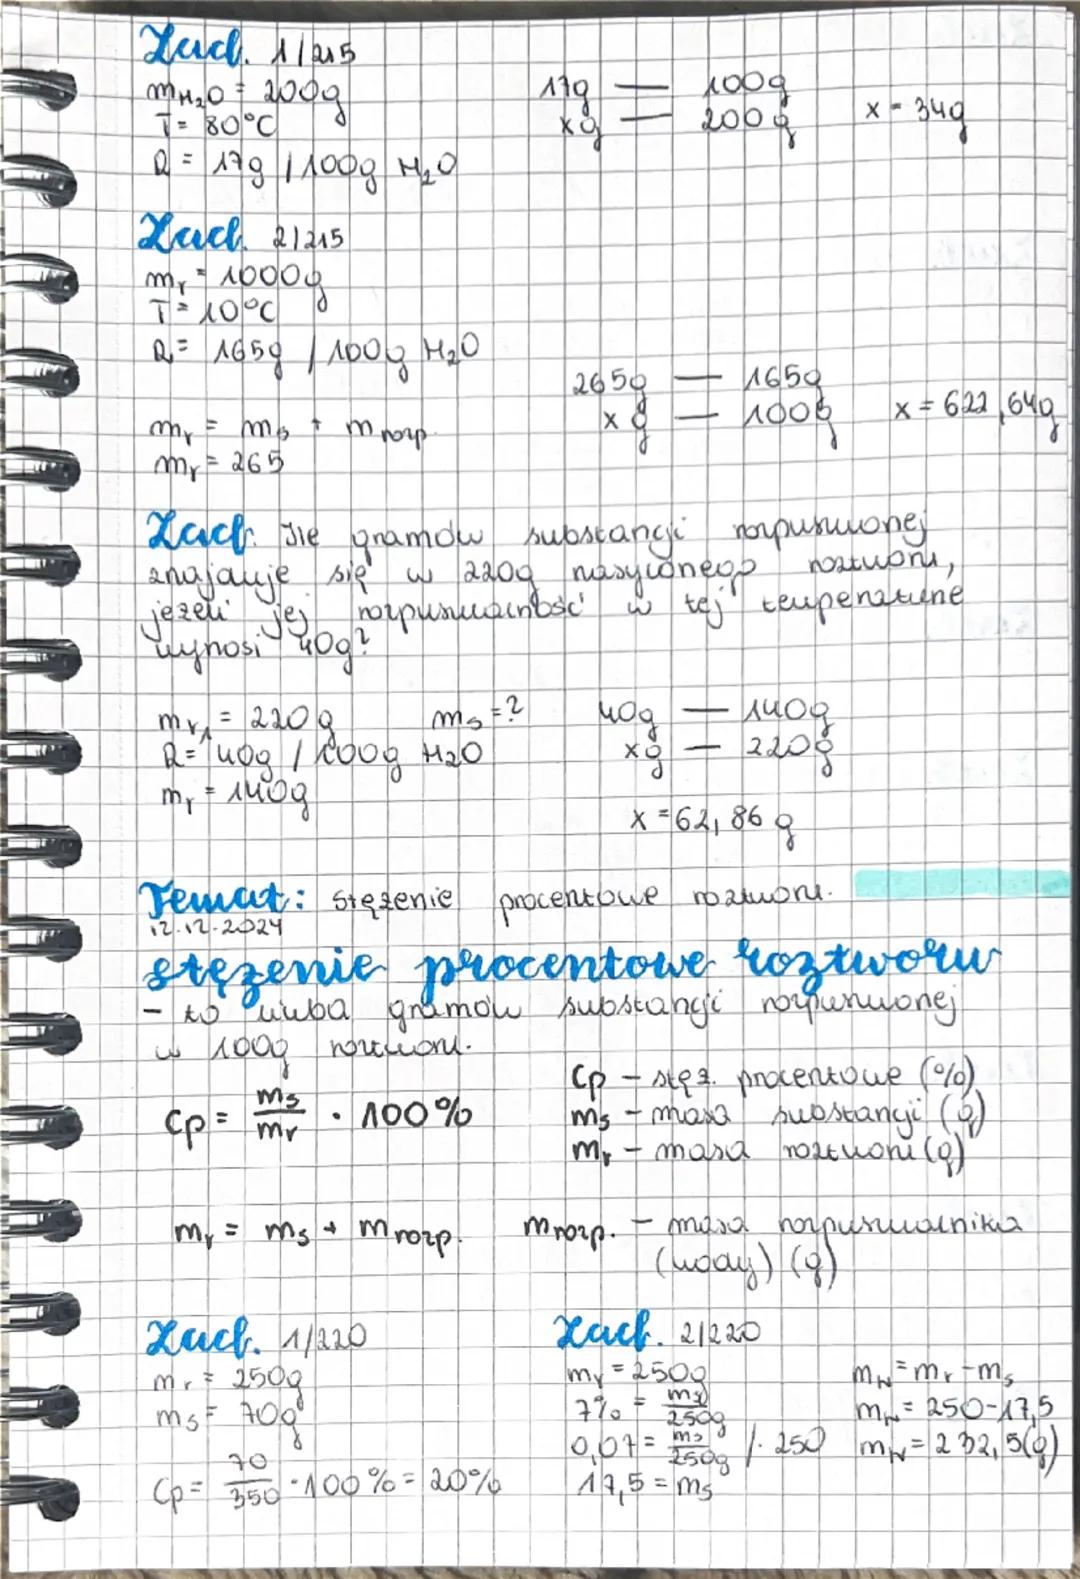 Zad. 1/215
mH₂O = 200g
T = 80°C
R = 17g / 100g H₂O
17g — 100g
xg — 200g
x = 34g
Zad. 2/215
mr = 1000g
T = 10°C
R = 165g / 100g H₂O
mr = ms + mrozp.
mr = 265
265g — 165g
xg — 100g
x = 622,64g
Zad. Ile gramów substancji rozpuszczonej
znajduje się w 220g nasyconego roztworu,
jeżeli jej rozpuszczalność w tej temperaturze
wynosi 40g?
mr₁ = 220g
ms = ?
R = 40g / 100g H₂O
mr = 140g
40g — 140g
xg — 220g
x = 62,86 g
Temat: Stężenie procentowe roztworu.
12.12.2024
stężenie procentowe roztworu
- to liczba gramów substancji rozpuszczonej
w 100g roztworu.
Cp = ms/mr · 100%
Cp – stęż. procentowe (%)
ms – masa substancji (g)
mr – masa roztworu (g)
mr = ms + mrozp.
mrozp. – masa rozpuszczalnika
(wody) (g)
Zad. 1/220
mr = 250g
ms = 70g
Cp = 70/350 · 100% = 20%
Zad. 2/220
mr = 250g
7% = ms/250g
0,07 = ms/250g /· 250
17,5 = ms
mw = mr - ms
mw = 250-17,5
mw = 232,5(g)